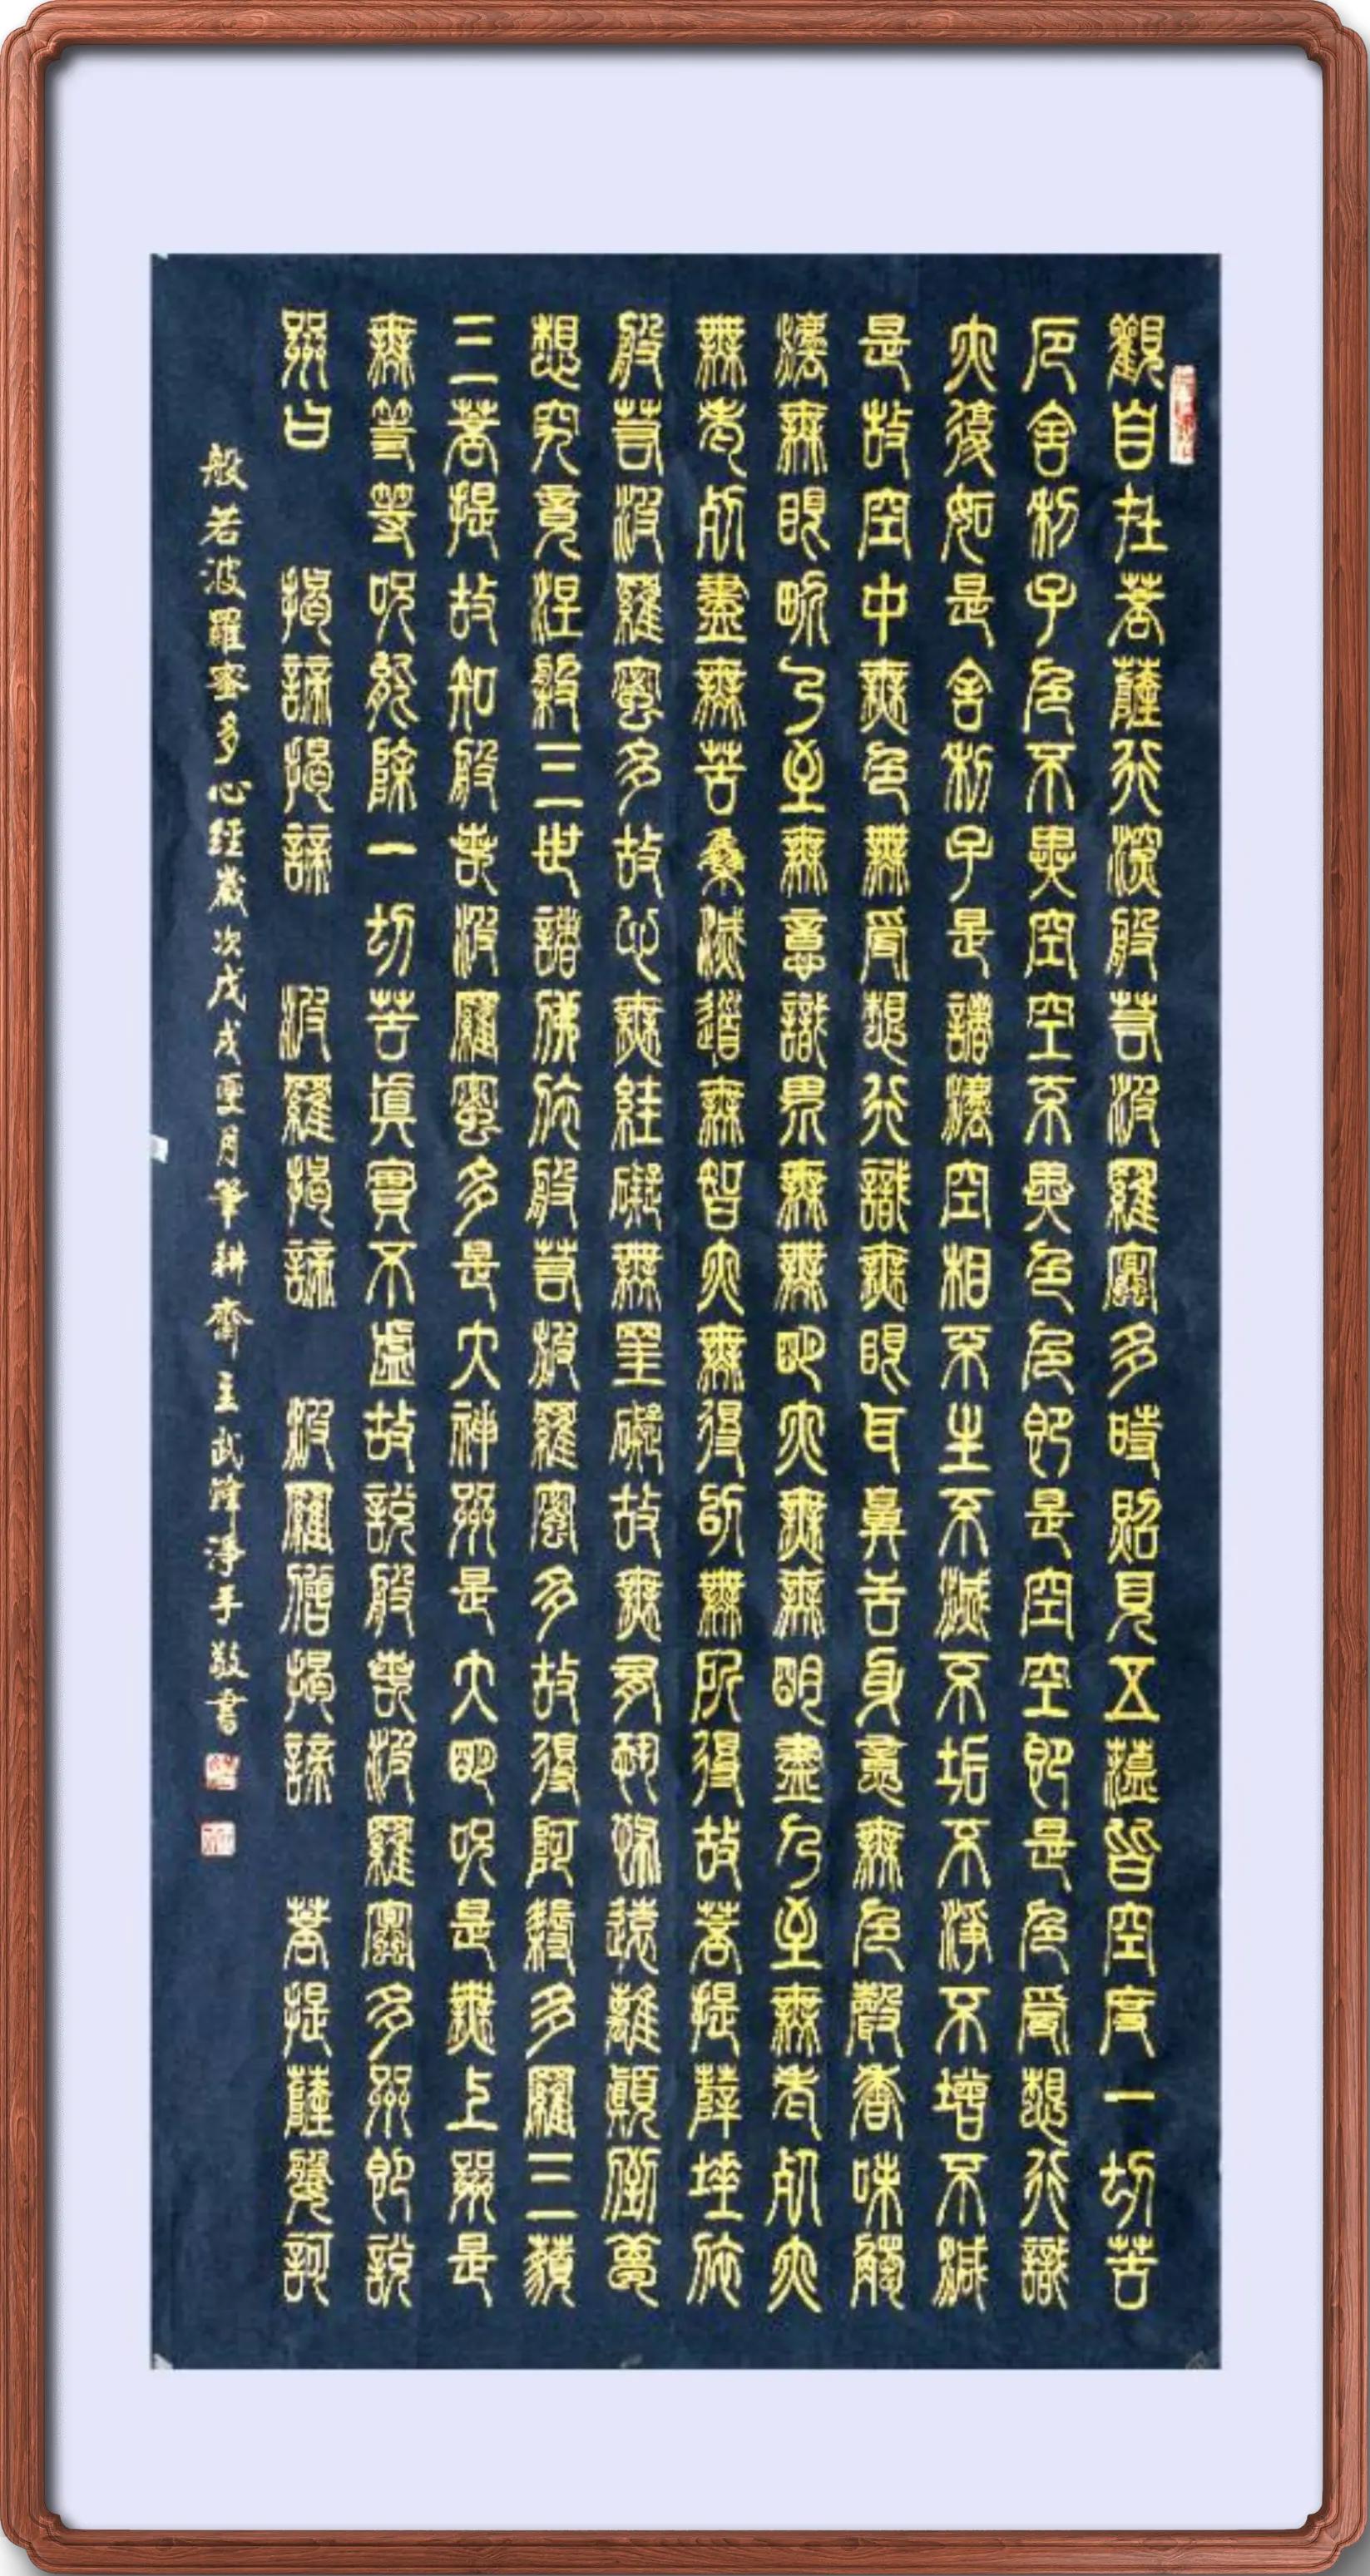 觀自在菩薩行深般若波羅蜜多時照見五蘊皆空度一切苦
厄舍利子色不異空空不異色色即是空空即是色受想行識
亦復如是舍利子是諸法空相不生不滅不垢不淨不增不減
是故空中無色無受想行識無眼耳鼻舌身意無色聲香味觸
法無眼界乃至無意識界無無明亦無無明盡乃至無老死亦
無老死盡無苦集滅道無智亦無得以無所得故菩提薩埵依
般若波羅蜜多故心無絓礙無罣礙故無有恐怖遠離顛倒夢
想究竟涅槃三世諸佛依般若波羅蜜多故得阿耨多羅三藐
三菩提故知般若波羅蜜多是大神咒是大明咒是無上咒是
無等等咒能除一切苦真實不虛故說般若波羅蜜多咒即說
咒曰 揭諦揭諦 波羅揭諦 波羅僧揭諦 菩提薩婆訶
般若波羅蜜多心經歲次戊戌夏月筆耕齋主武隆淨手敬書